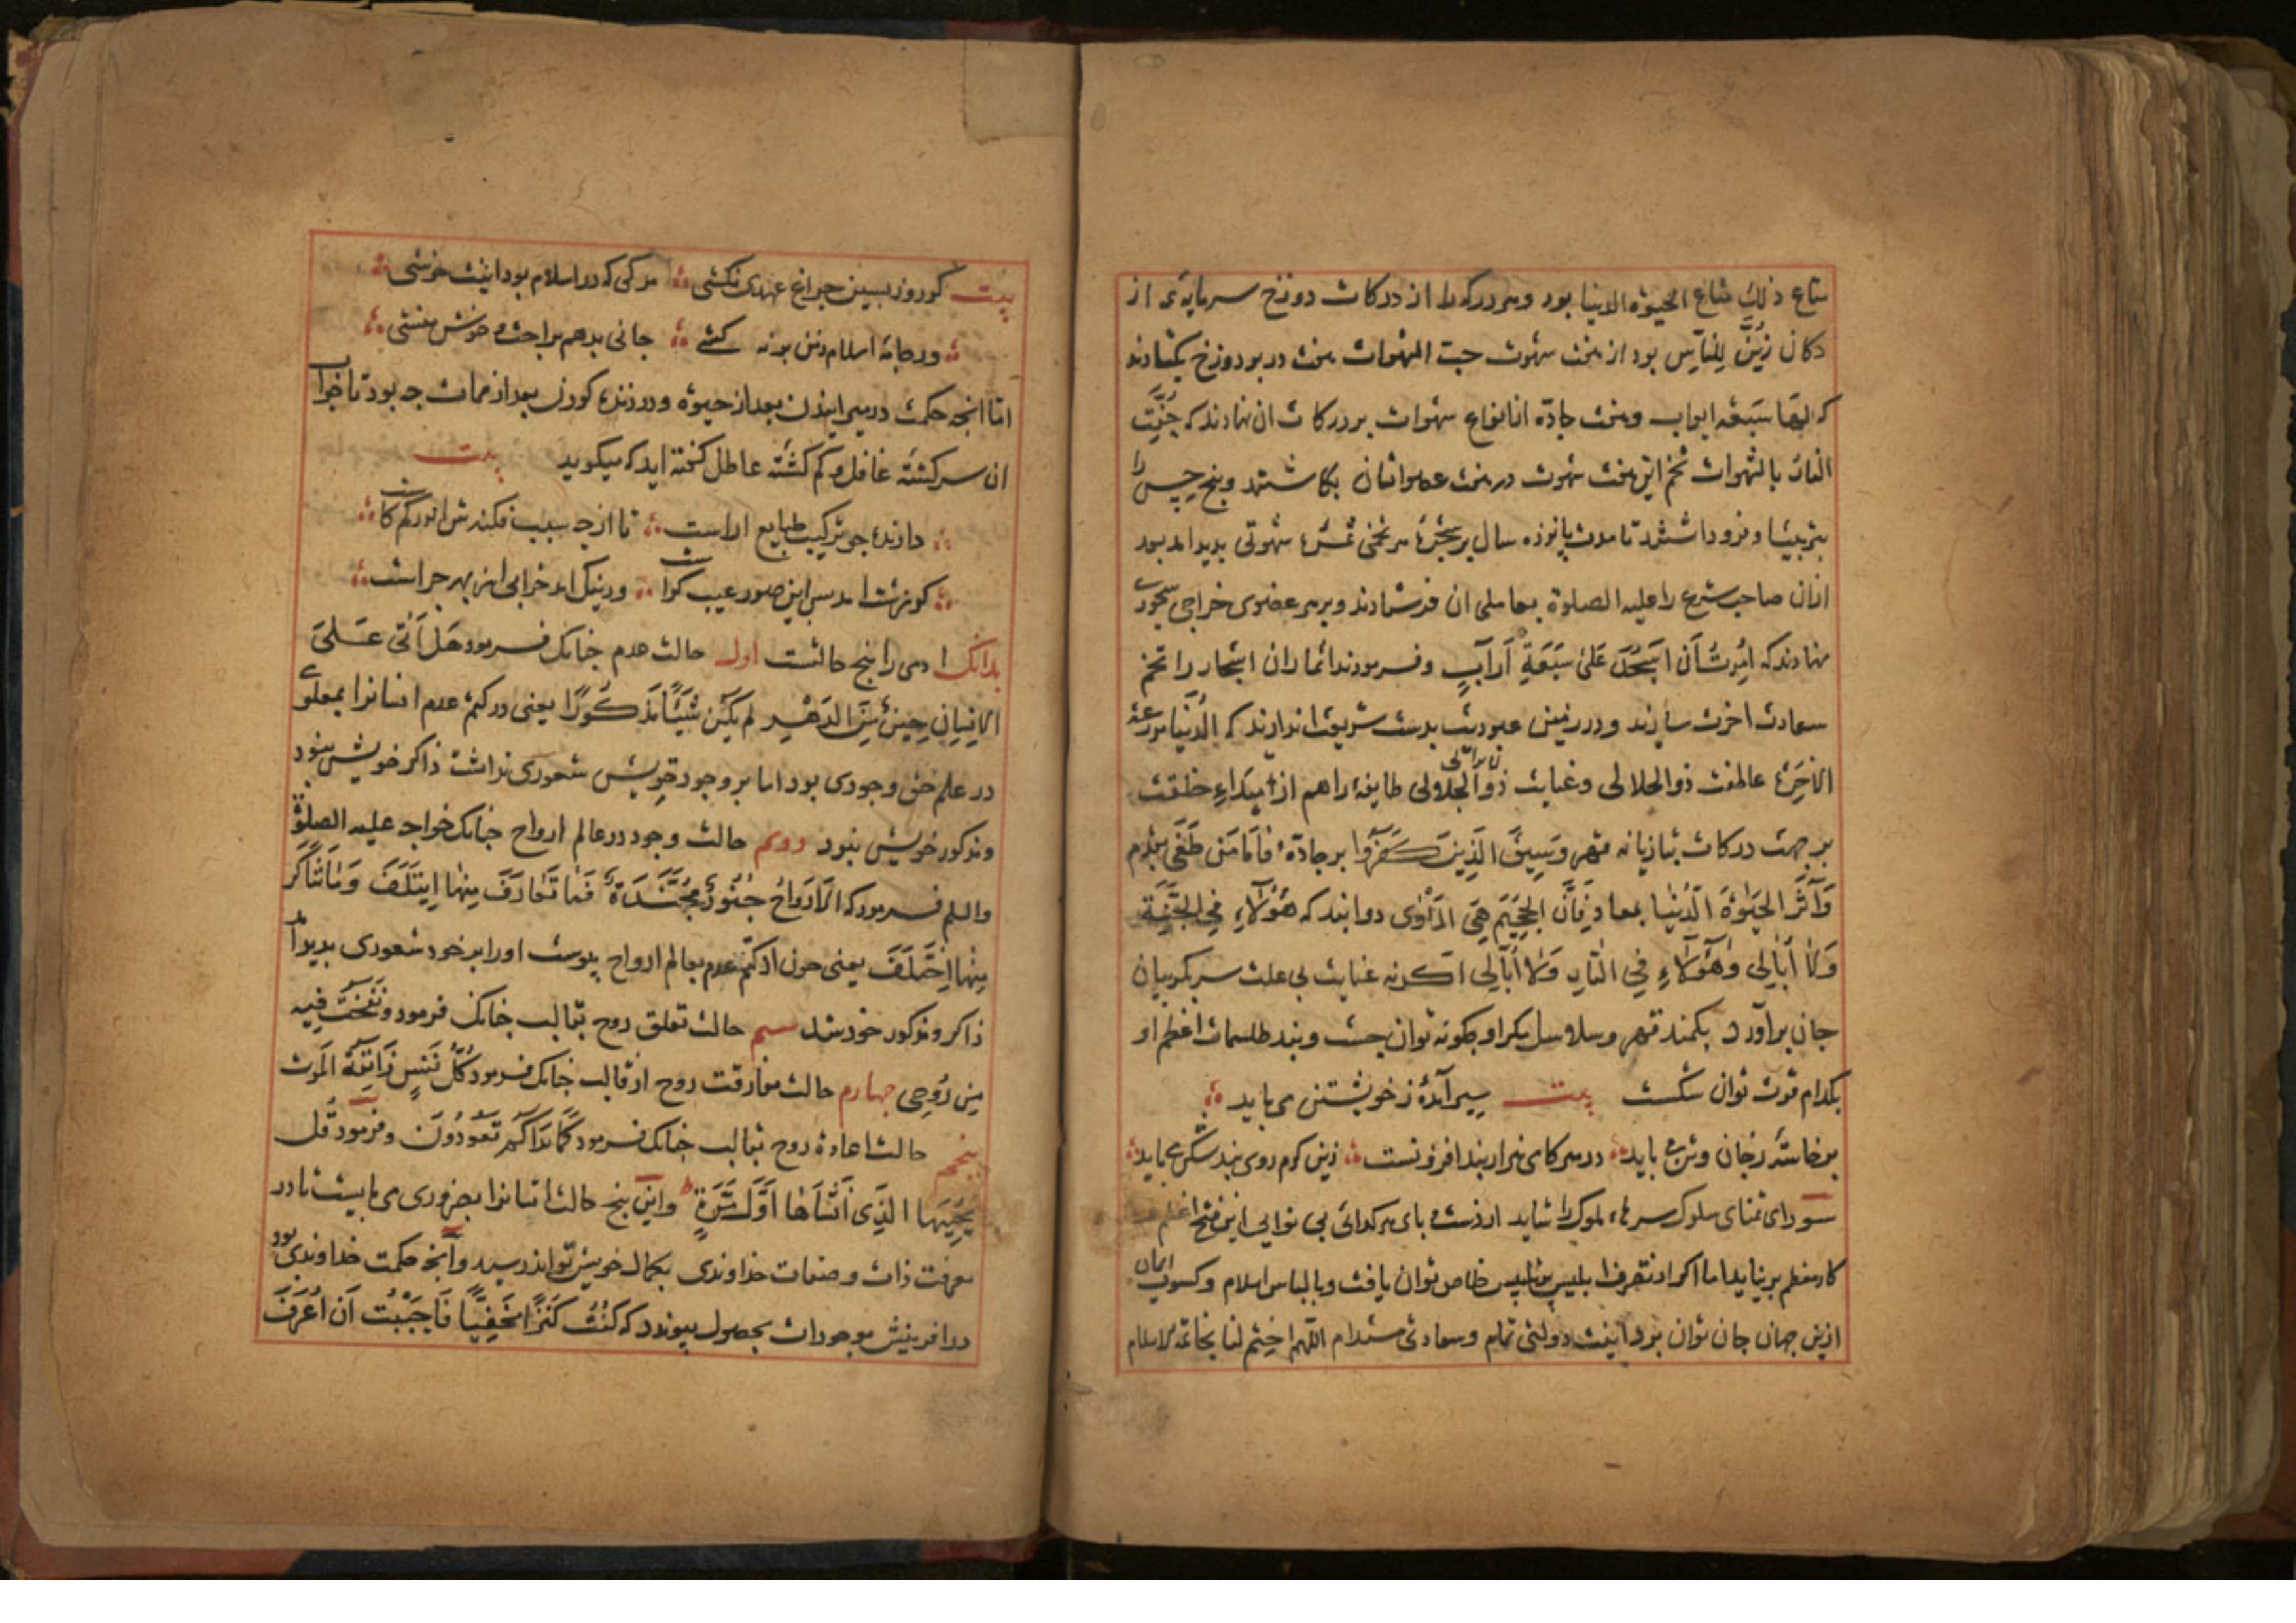 متاع ذلك متاع الحيوة الدنيا بود وهر دركه را از دركات دوزخ سرمايه‌ی از
دكان زُيِّنَ لِلنَّاسِ بود از شهوت حب الشهوات در بر دوزخ بكشادند
كه لها سبعة ابواب و جادّه انابواع شهوات بر دركات ان نهادند كه حُفَّت
النار بالشهوات تخم اين شهوت در بكاشتند وبنج حس را
بتربيت فرود داشتند تا مدت پانزده سال بر شجرۀ هر تخمی ثمرۀ شهوتی بديد امد بعد
ازان صاحب شرع را عليه الصلوة بعاملی ان فرستادند وبر هر عضوی خراجی سجودی
نهادند كه اُمِرتُ اَن اَسجُدَ عَلیٰ سَبعَةِ آرابٍ وفرمودند اثمار ان اشجار را تخم
سعادت اخرت سازند ودر زمين عبوديت بدست شريعت اندازند كه الدُّنيا مزرعة
الاخِرَة عاطفت ذوالجلالی وعنايت ذوالجلالی طايفۀ را هم از ابتداءِ خلقت
بر جهت دركات بتازيانه قهر وَسِيقَ الَّذِينَ كَفَرُوا بر جادّۀ فَاَمَّا مَن طَغَی بقدم
وَآثَرَ الحَيٰوةَ الدُّنيٰا بمعاد فَاِنَّ الجَحِيمَ هِیَ المَأوٰی دوانيد كه هٰؤُلَاءِ فِی الجَنَّةِ
وَلاٰ اُبَالِی وَهٰؤُلَاءِ فِی النَّارِ وَلاٰ اُبَالِی اكر نه عنايت بی علت سر بكريبان
جان برآورد بكمند قهر وسلاسل مكر او جكونه توان جست وبند طلسمات اعظم او
بكدام قوت توان شكست بيت سير آمدۀ ز خويشتن می بايد
برخاستۀ ز جان وتن می بايد در هر كامی هزار بند افزونست زين كرم روی بند شكن می بايد
سودای تمنای سلوك سر ملوك را نشايد از دست وبای هر كدائی بی نوايی اين فتح اعظم
كار معظم بر نيايد اما اكر از تصرف ابليس بتلبيس خلاص توان يافت وبا لباس اسلام وكسوت ايمان
ازين جهان جان توان برد اينت دولتی تمام وسعادتی مستدام اللهم اختم لنا بخاتمة الاسلام
بيت كر روز بسين جراغ عهدی نكشی مركی كه در اسلام بود اينت خوشی
ور جامۀ اسلام ز تن بر نه كشی جانی بدهم براحت وخوش منشی
امّا انجه حكمت در ميرانيدن بعد از حيوة ودر زنده كردن بعد از ممات جه بود تا جواب
ان سركشته غافل وكم كشته عاطل كفته ايد كه ميكويد بيت
دارنده جو تركيب طبايع اراست تا از جه سبب فكندش اندر كم وكاست
كر زشت امد بس اين صور عيب كراست ور نيك امد خرابی از بهر جراست
بدانك ادمی را بنج حالتست اول حالت عدم جنانك فرمود هَل اَتٰی عَلیَ
الاِنسانِ حِينٌ مِّنَ الدَّهرِ لم يَكُن شَيئًا مَّذكُورًا يعنی در كتم عدم انسانرا بمعلومی
در علم حق وجودی بود اما بر وجود خويش شعوری نداشت ذاكر خويش نبود
ومذكور خويش نبود دوم حالت وجود در عالم ارواح جنانك خواجه عليه الصلوة
والسلم فرمود كه الاَروَاحُ جُنُودٌ مُجَنَّدَةٌ فَمَا تَعَارَفَ مِنهٰا اِيتَلَفَ وَمٰا تَنَاكَرَ
مِنهَا اِختَلَفَ يعنی جون از كتم عدم بعالم ارواح پيوست اورا بر خود شعوری بديد آمد
ذاكر ومذكور خود شد سيم حالت تعلق روح بقالب جنانك فرمود وَنَفَختُ فِيهِ
مِن رُوحِی جهارم حالت مفارقت روح از قالب جنانك فرمود كُلُّ نَفسٍ ذَائِقَةُ المَوت
بنجم حالت اعادۀ روح بقالب جنانك فرمود كَمَا بَدَاَكُم تَعُودُونَ وفرمود قُل
يُحيِيهَا الَّذِی اَنشَاَهَا اَوَّلَ مَرَّةٍ واين بنج حالت انسانرا بضروری می بايست تا در
معرفت ذات وصفات خداوندی بكمال خويش تواند رسيد وآنجه حكمت خداوندی بود
در افرينش موجودات بحصول پيوندد كه كُنتُ كَنزًا مَخفِيًّا فَاَحبَبتُ اَن اُعرَفَ